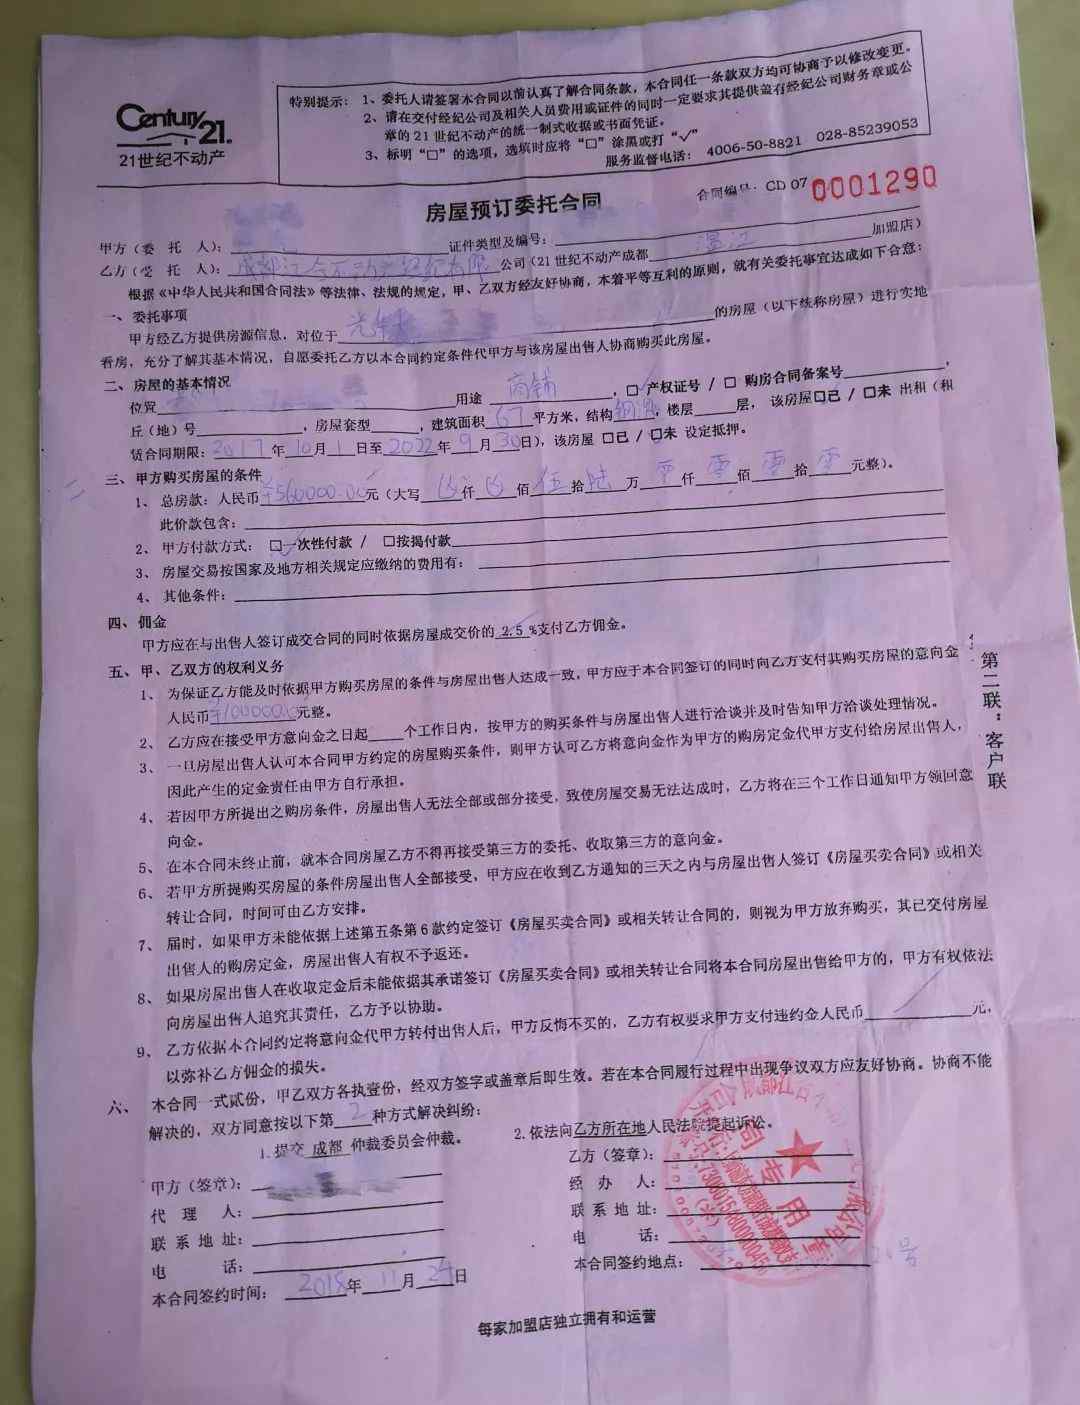 Century 21.
21世纪不动产
特别提示：1、委托人请签署本合同以前认真了解合同条款，本合同任一条款双方均可协商予以修改变更。
2、请在交付经纪公司及相关人员费用或证件的同时一定要求其提供盖有经纪公司财务章或公
章的21世纪不动产的统一制式收据或书面凭证。
3、标明“□”的选项，选填时应将“□”涂黑或打“√”
服务监督电话：4006-50-8821 028-85239053
合同编号：CD 07 0001290
房屋预订委托合同
甲方（委 托 人）： 证件类型及编号：
乙方（受 托 人）： 公司（21世纪不动产成都 温江 加盟店）
根据《中华人民共和国合同法》等法律、法规的规定，甲、乙双方经友好协商，本着平等互利的原则，就有关委托事宜达成如下合意：
一、委托事项
甲方经乙方提供房源信息，对位于 的房屋（以下统称房屋）进行实地
看房，充分了解其基本情况，自愿委托乙方以本合同约定条件代甲方与该房屋出售人协商购买此房屋。
二、房屋的基本情况
位置 用途 商铺 ，□ 产权证号 / □ 购房合同备案号 ，
丘（地）号 ，房屋套型 ，建筑面积 67 平方米，结构 ，楼层 层， 该房屋□已 / □未 出租（租
赁合同期限：2017年10月1日至2022年9月30日），该房屋 □已 / □未 设定抵押。
三、甲方购买房屋的条件
1、 总房款：人民币¥560000.00元（大写 仟 佰 伍 拾 陆 万 零 仟 零 佰 零 拾 零 元整）。
此价款包含：
2、 甲方付款方式： □一次性付款 / □按揭付款
3、 房屋交易按国家及地方相关规定应缴纳的费用有：
4、 其他条件：
四、佣金
甲方应在与出售人签订成交合同的同时依据房屋成交价的 2.5 %支付乙方佣金。
五、甲、乙双方的权利义务
1、 为保证乙方能及时依据甲方购买房屋的条件与房屋出售人达成一致，甲方应于本合同签订的同时向乙方支付其购买房屋的意向金
人民币 元整。
2、 乙方应在接受甲方意向金之日起 个工作日内，按甲方的购买条件与房屋出售人进行洽谈并及时告知甲方洽谈处理情况。
3、 一旦房屋出售人认可本合同甲方约定的房屋购买条件，则甲方认可乙方将意向金作为甲方的购房定金代甲方支付给房屋出售人，
因此产生的定金责任由甲方自行承担。
4、 若因甲方所提出之购房条件，房屋出售人无法全部或部分接受，致使房屋交易无法达成时，乙方将在三个工作日通知甲方领回意
向金。
5、 在本合同未终止前，就本合同房屋乙方不得再接受第三方的委托、收取第三方的意向金。
6、 若甲方所提购买房屋的条件房屋出售人全部接受，甲方应在收到乙方通知的三天之内与房屋出售人签订《房屋买卖合同》或相关
转让合同，时间可由乙方安排。
7、 届时，如果甲方未能依据上述第五条第6款约定签订《房屋买卖合同》或相关转让合同的，则视为甲方放弃购买，其已交付房屋
出售人的购房定金，房屋出售人有权不予返还。
8、 如果房屋出售人在收取定金后未能依据其承诺签订《房屋买卖合同》或相关转让合同将本合同房屋出售给甲方的，甲方有权依法
向房屋出售人追究其责任，乙方予以协助。
9、 乙方依据本合同约定将意向金代甲方转付出售人后，甲方反悔不买的，乙方有权要求甲方支付违约金人民币 元，
以弥补乙方佣金的损失。
六、 本合同一式贰份，甲乙双方各执壹份，经双方签字或盖章后即生效。若在本合同履行过程中出现争议双方应友好协商。协商不能
解决的，双方同意按以下第 2 种方式解决纠纷：
1.提交 成都 仲裁委员会仲裁。 2.依法向乙方所在地人民法院提起诉讼。
甲方（签章）： 乙方（签章）：
代 理 人： 经 办 人：
联 系 地 址： 联 系 地 址：
电 话： 电 话：
本合同签约时间： 2018年11月24日 本合同签约地点：
每家加盟店独立拥有和运营
第二联：客户联